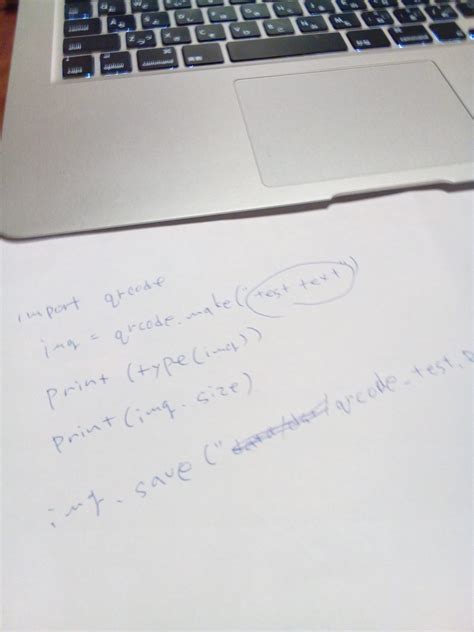 import qrcode
img = qrcode.make("test text")
print (type(img))
print (img.size)
img.save ("/qrcode_test.